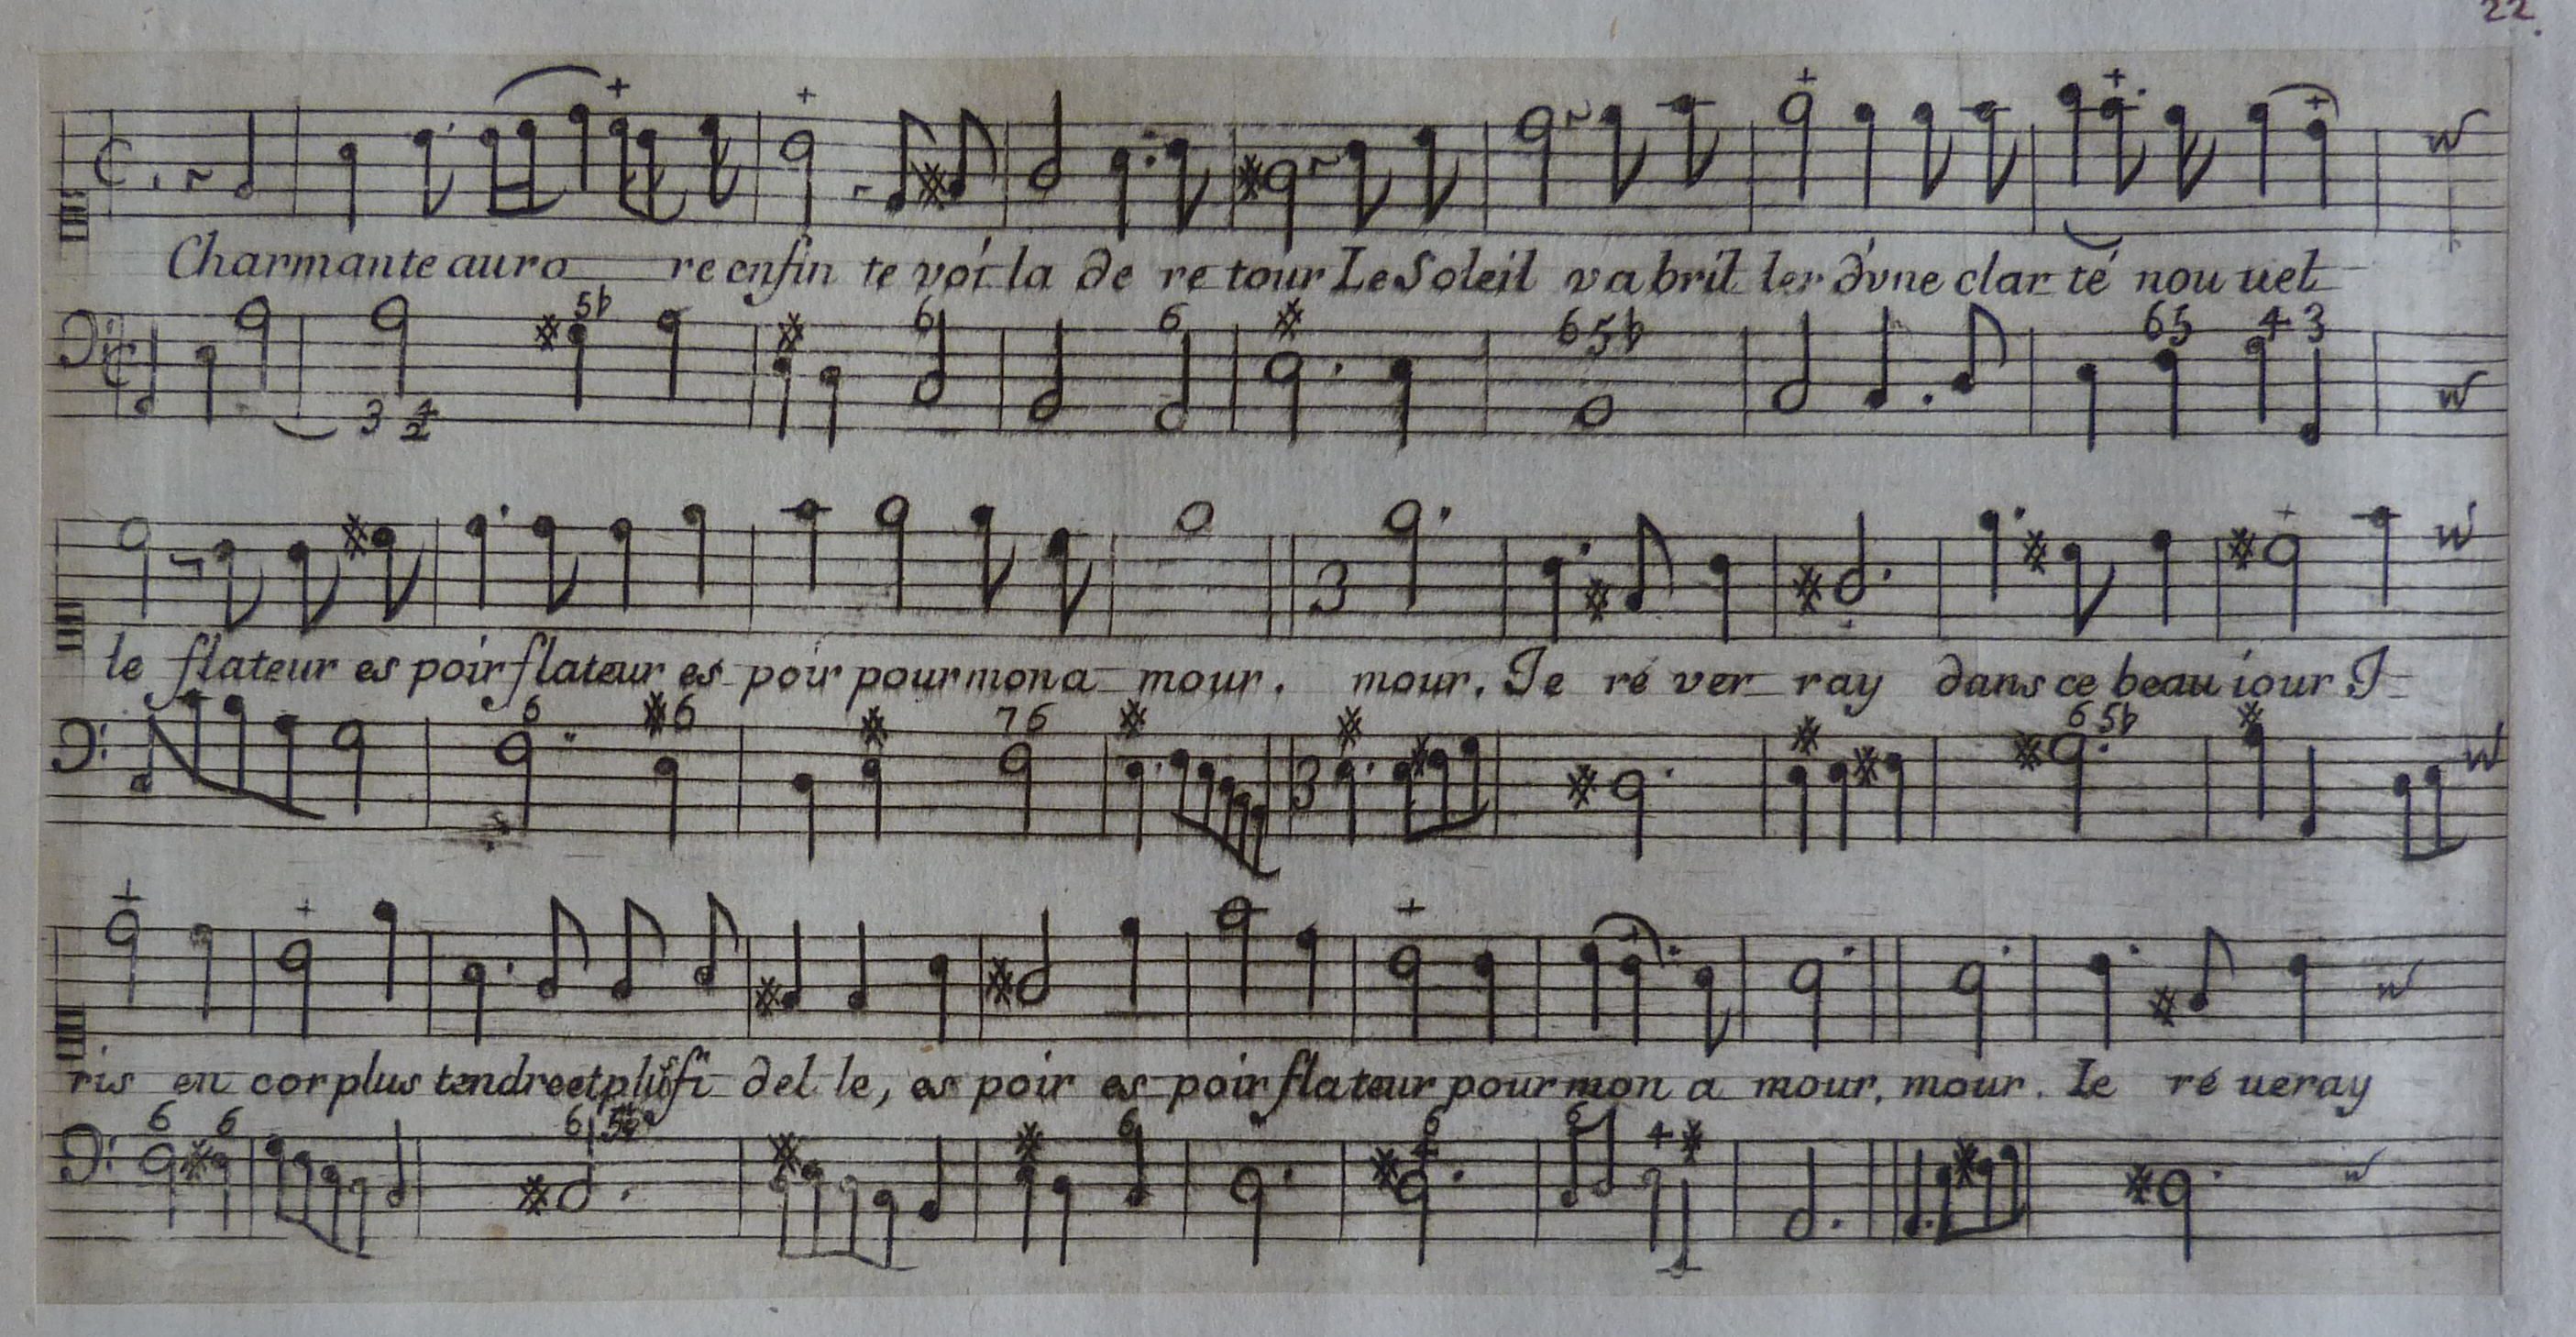 22.
Charmante auro re enfin te voi la de re tour Le Soleil va bril ler d'vne clar té nou uel
6 5♭ 6 6 6 5♭ 6 5 4 3
3 4 2
le flateur es poir flateur es poir pour mon a mour. mour. Je ré ver ray dans ce beau iour I
6 6 7 6 6 5♭
3 3
ris en cor plus tendre et plus fi del le, es poir es poir flateur pour mon a mour, mour. Ie ré ueray
6 6 6 5 6 6 4 6 4